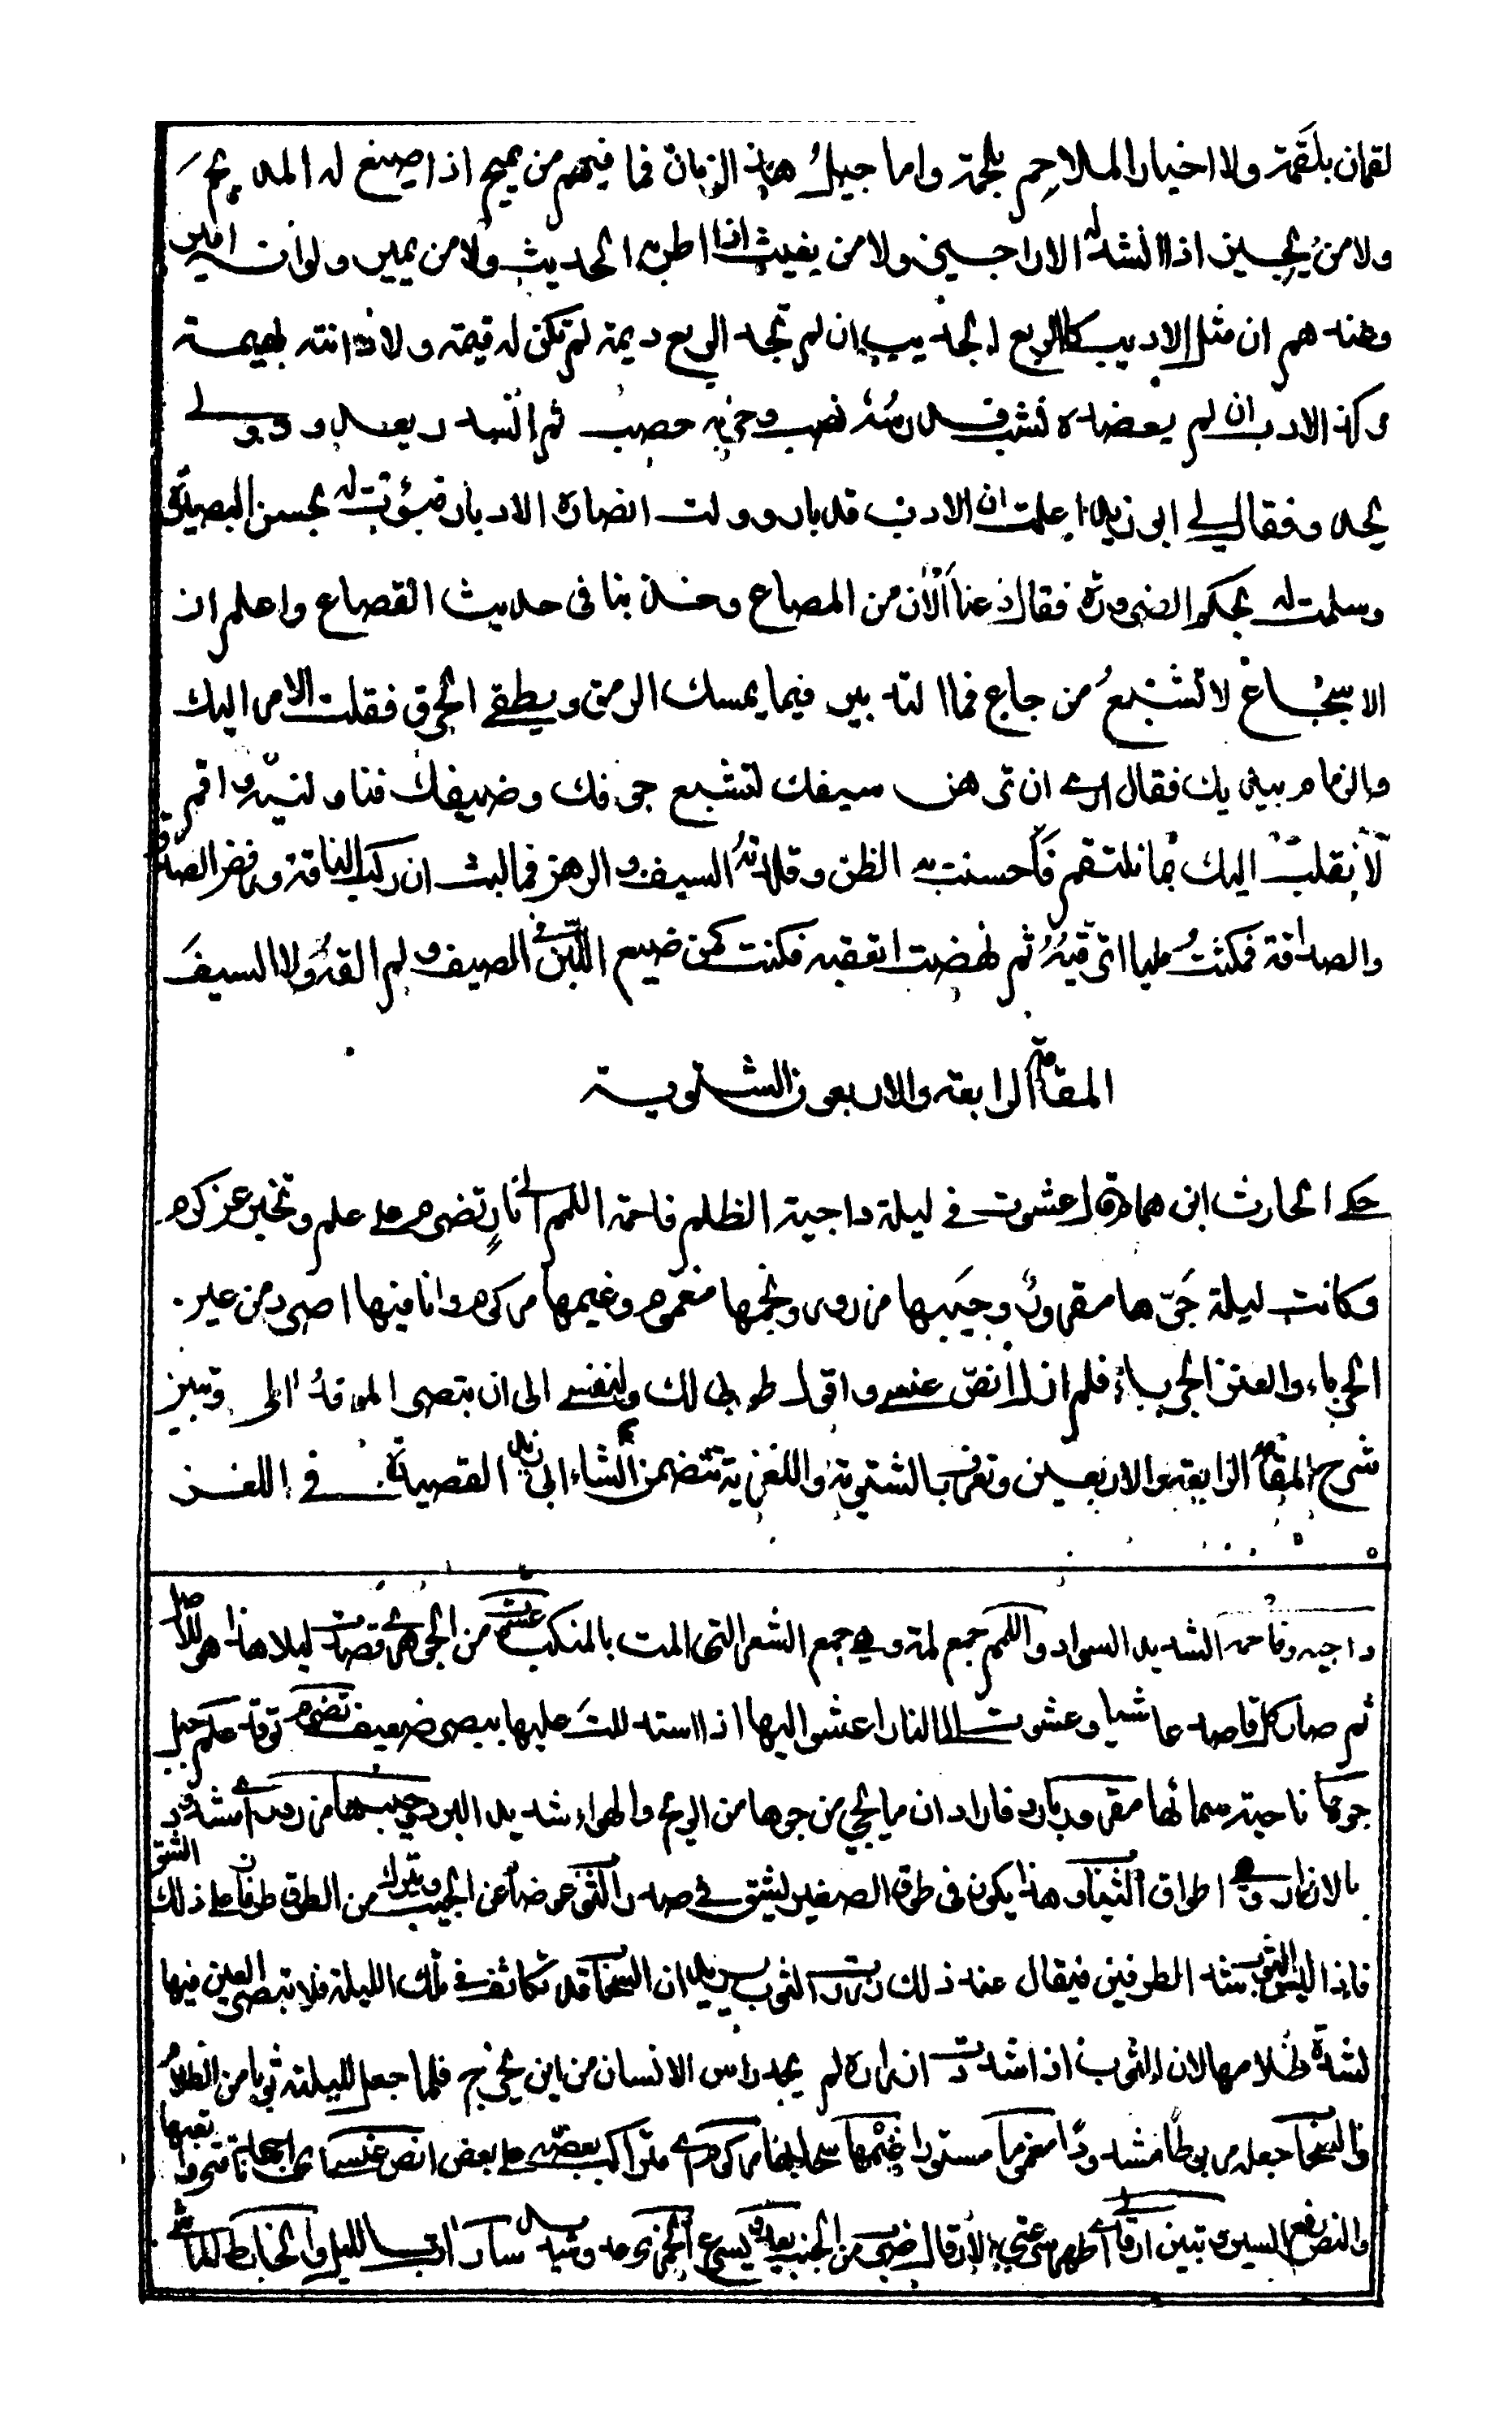 لقمان بلقمة ولا اخبار الملاحم بلحمة واما جيلُ هذا الزمان فما فيهم من يميح اذا صيغ له المديح
ولا من يجيز اذا انشد له الاراجيز ولا من يغيث اذا اطربه الحديث ولا من يمير ولو انه امير
وعندهم ان مثل الاديب كالربع الجديب ان لم تجد الربع ديمة لم تكن له قيمة ولا دانته بهيمة
وكذا الادب ان لم يعضده نشب فدرسه نصب وحزبه حصب ثم انسدر يعدو وولى
يحدو فقال لى ابو زيد اعلمت ان الادب قد بار وولت انصاره الادبار فبؤت له بحسن البصيرة
وسلمت له بحكم الضرورة فقال دعنا الآن من المصاع وخذ بنا فى حديث القصاع واعلم ان
الاسجاع لا تشبع من جاع فما التدبير فيما يمسك الرمق ويطفى الحرق فقلت الامر اليك
والزمام بيديك فقال ارى ان ترهن سيفك لتشبع جوفك وضيفك فناولنيه واقم
لأنقلب اليك بما نلتقم فأحسنت به الظن وقلدته السيف والرهن فما لبث ان ركب الناقة ورفض الصدق
والصداقة فمكثت مليا اترقبه ثم نهضت اتعقبه فكنت كمن ضيع اللبن فى الصيف ولم القه ولا السيف
المقامة الرابعة والاربعون الشتوية
حكى الحارث ابن همام قال عشوت فى ليلة داجية الظلم فاحمة اللمم الى نار تضرم على علم وتخبر عن كرم
وكانت ليلة جَوّها مقرور وجَيبها مزرور ونجمها مغموم وغيمها مركوم وانا فيها اصرد من عين
الحرباء والعنز الجرباء فلم ازل انص عنسى واقول طوبى لك ولنفسى الى ان تبصر الموقد الى وتبين
شرح المقامة الرابعة والاربعين وتعرف بالشتوية واللغزية تتضمن انشاء ابى زيد القصيدة فى اللغز
داجية وفاحمة الشديد السواد واللمم جمع لمة وهى جمع الشعر التى المت بالمنكب عشوت من الجوهرى قصدت ليلا هذا هو الاصل
ثم صار كل قاصد عاشيا وعشوت الى النار اعشو اليها اذا استدللت عليها ببصر ضعيف تضرم توقد علم جبل
جوها ناحية سمائها مقرور بارد فاراد ان ما يجئ من جوها من الريح والهواء شديد البرد جيبها مزرور اى مشدود
بالازرار وهى اطواق الثياب وهذا يكون فى طوق الصغير ليشق فى صدر الثوب عوضا عن الجيب ويترك من الطرق طرفا على ذلك الشق
فاذا لبس الثوب شد الطرفين فيقال عند ذلك زررت الثوب يريد ان السحاب قد تكاثف فى تلك الليلة فلا تبصر العين فيها
لشدة ظلامها لان الثوب اذا شدت ازراره لم يجد راس الانسان من اين يخرج فلما جعل لليلته ثوبا من الظلام
والسحاب جعله مربوطا مشدودا مغموما مستورا غيمها سحابها مركوم اى متراكب بعضه على بعض انص عنسى اى اجهد ناقتى واتعبها
والنص رفع السير وتبين